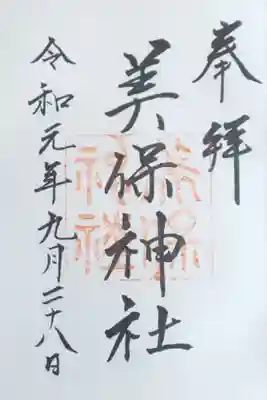 奉拝
美保神社
令和元年九月二十八日